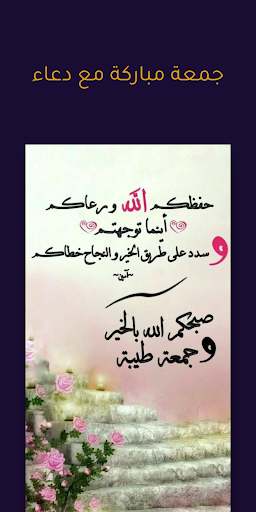 جمعة مباركة مع دعاء
حفظكم الله ورعاكم
أينما توجهتم
وسدد على طريق الخير والنجاح خطاكم
~آمين~
صبحكم الله بالخير
وجمعة طيبة